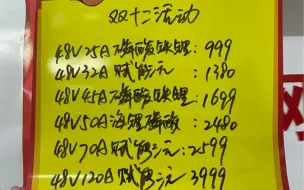 双十二活动
48V25A磷酸铁锂:999
48V32A赋能元:1380
48V45A磷酸铁锂:1699
48V50A海锂磷酸:2480
48V70A赋能元:2599
48V120A赋能元:3999